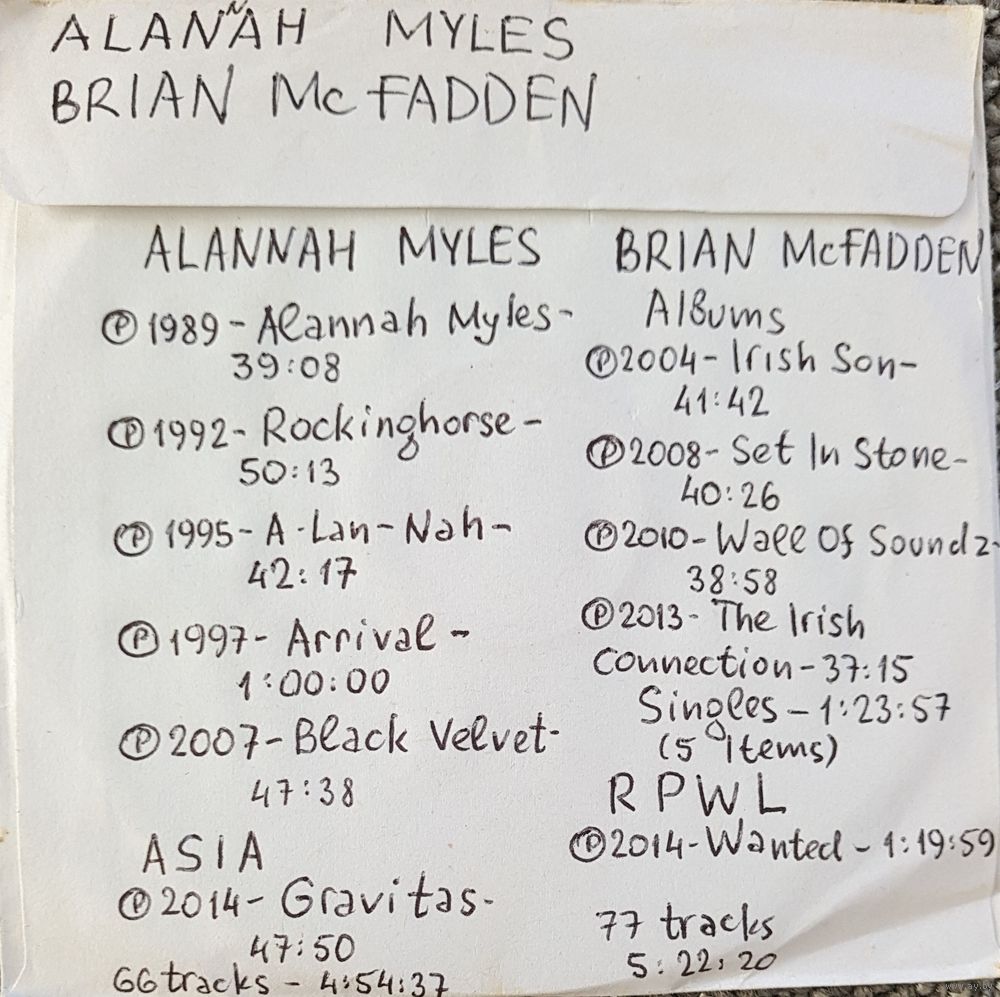 ALANNAH MYLES
BRIAN McFADDEN
ALANNAH MYLES
Ⓟ 1989 - Alannah Myles -
39:08
Ⓟ 1992 - Rockinghorse -
50:13
Ⓟ 1995 - A-Lan-Nah -
42:17
Ⓟ 1997 - Arrival -
1:00:00
Ⓟ 2007 - Black Velvet -
47:38
ASIA
Ⓟ 2014 - Gravitas -
47:50
66 tracks - 4:54:37
BRIAN McFADDEN
Albums
Ⓟ 2004 - Irish Son -
41:42
Ⓟ 2008 - Set In Stone -
40:26
Ⓟ 2010 - Wall Of Soundz -
38:58
Ⓟ 2013 - The Irish
Connection - 37:15
Singles - 1:23:57
(5 items)
RPWL
Ⓟ 2014 - Wanted - 1:19:59
77 tracks
5:22:20
www.ay.by